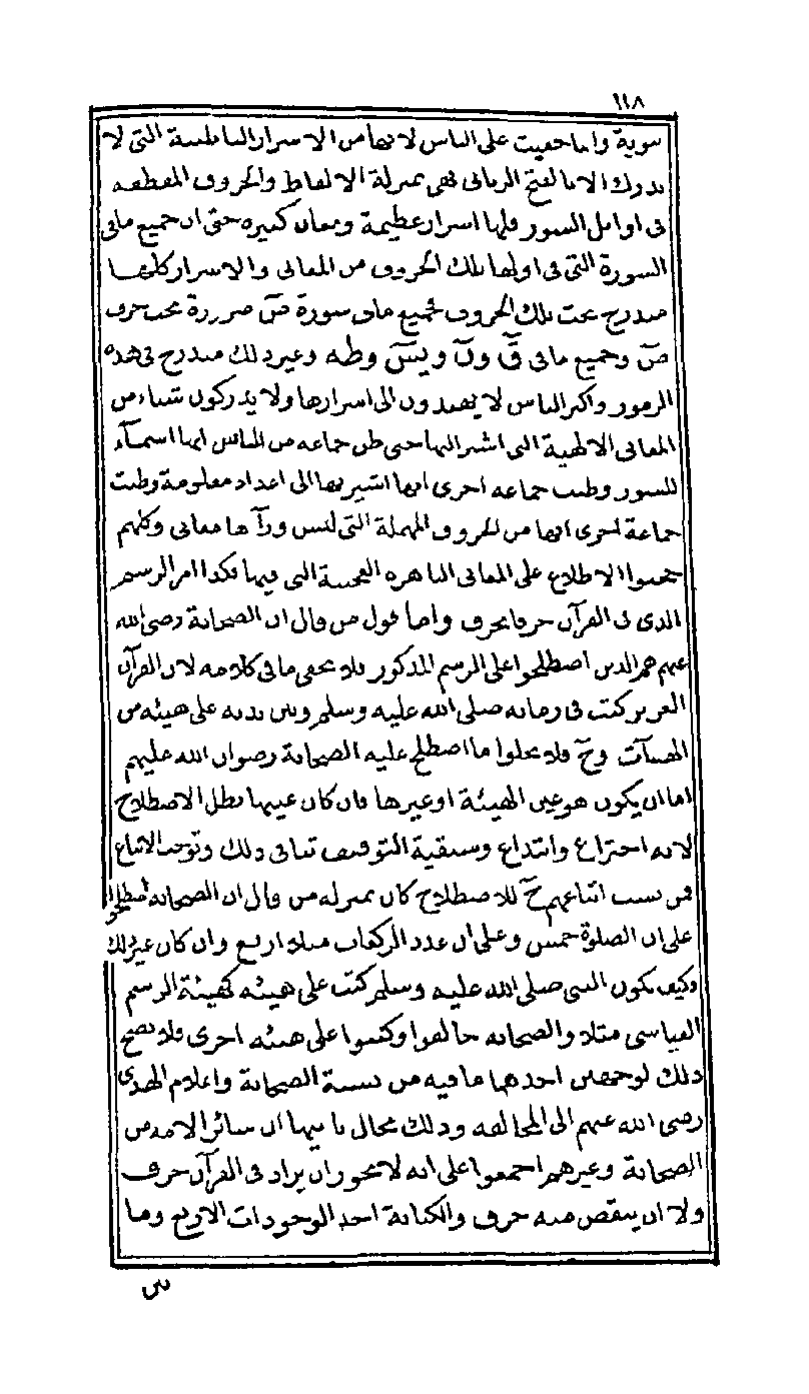 ١١٨
نبوية وانما خفيت على الناس لانها من الاسرار الباطنية التى لا
يدرك الا بالفتح الربانى فهى بمنزلة الالفاظ والحروف المقطعه
فى اوايل السور فلها اسرار عظيمة ومعان كثيره حتى ان جميع مافى
السورة التى فى اولها تلك الحروف من المعانى والاسرار كلها
مندرج تحت تلك الحروف فجميع مافى سورة صٓ مندرج تحت حرف
صٓ وجميع مافى قٓ ونٓ ويسٓ وطه وغير ذلك مندرج فى هذه
الرموز واكثر الناس لا يهتدون الى اسرارها ولا يدركون شياء من
المعانى الالهية التى اشير اليها حتى ظن جماعه من الناس انها اسمآء
للسور وظنت جماعه اخرى انها اشير بها الى اعداد معلومة وظنت
جماعة اخرى انها من الحروف المهملة التى ليس ورآها معانى وكلهم
حجبوا الاطلاع على المعانى الباهره العجيبة التى فيها فكذا امر الرسم
الذى فى القرآن حرفا بحرف واما قول من قال ان الصحابة رضى الله
عنهم هم الذين اصطلحوا على الرسم المذكور فلا يخفى ما فى كلامه لان القرآن
العزيز كتب فى زمانه صلى الله عليه وسلم وبين يديه على هيئه من
الهيئآت وحٓ فلا يخلوا ما اصطلح عليه الصحابة رضوان الله عليهم
اما ان يكون هو عين الهيئة او غيرها فان كان عينها بطل الاصطلاح
لانه اختراع وابتداع وسبقية التوقيف تنافى ذلك وتوجب الاتباع
فمن نسب اتباعهم حٓ للاصطلاح كان بمنزله من قال ان الصحابه اصطلحوا
على ان الصلوة خمس وعلى ان عدد الركعات مثلا اربع وان كان غير ذلك
فكيف يكون النبى صلى الله عليه وسلم كتب على هيئه كهيئة الرسم
القياسى مثلا والصحابه خالفوا وكتبوا على هيئه اخرى فلا يصح
ذلك لوجهين احدهما ما فيه من نسبة الصحابة واعلام الهدى
رضى الله عنهم الى المخالفه وذلك محال ثانيها ان سائر الامه من
الصحابة وغيرهم اجمعوا على انه لا يجوز ان يزاد فى القرآن حرف
ولا ان ينقص منه حرف والكتابة احد الوجودات الاربع وما